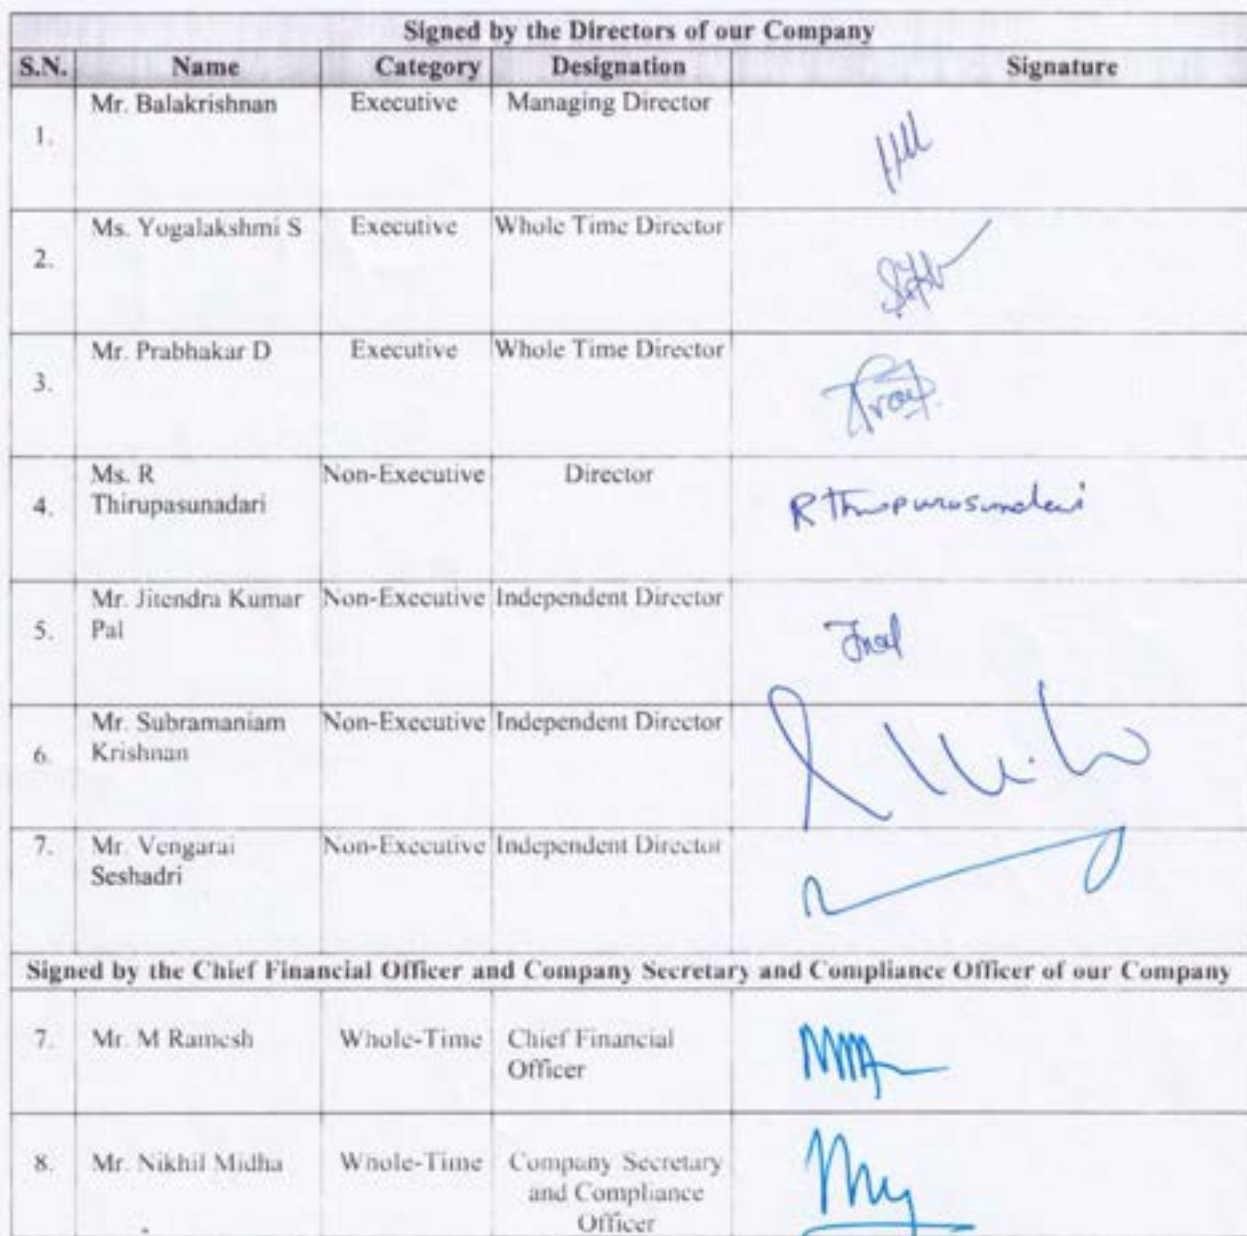 Signed by the Directors of our Company
S.N. Name Category Designation Signature
1. Mr. Balakrishnan Executive Managing Director
2. Ms. Yogalakshmi S Executive Whole Time Director
3. Mr. Prabhakar D Executive Whole Time Director
4. Ms. R Non-Executive Director
Thirupasunadari
R Thirupurasundari
5. Mr. Jitendra Kumar Non-Executive Independent Director
Pal
6. Mr. Subramaniam Non-Executive Independent Director
Krishnan
7. Mr. Vengarai Non-Executive Independent Director
Seshadri
Signed by the Chief Financial Officer and Company Secretary and Compliance Officer of our Company
7. Mr. M Ramesh Whole-Time Chief Financial
Officer
8. Mr. Nikhil Midha Whole-Time Company Secretary
and Compliance
Officer